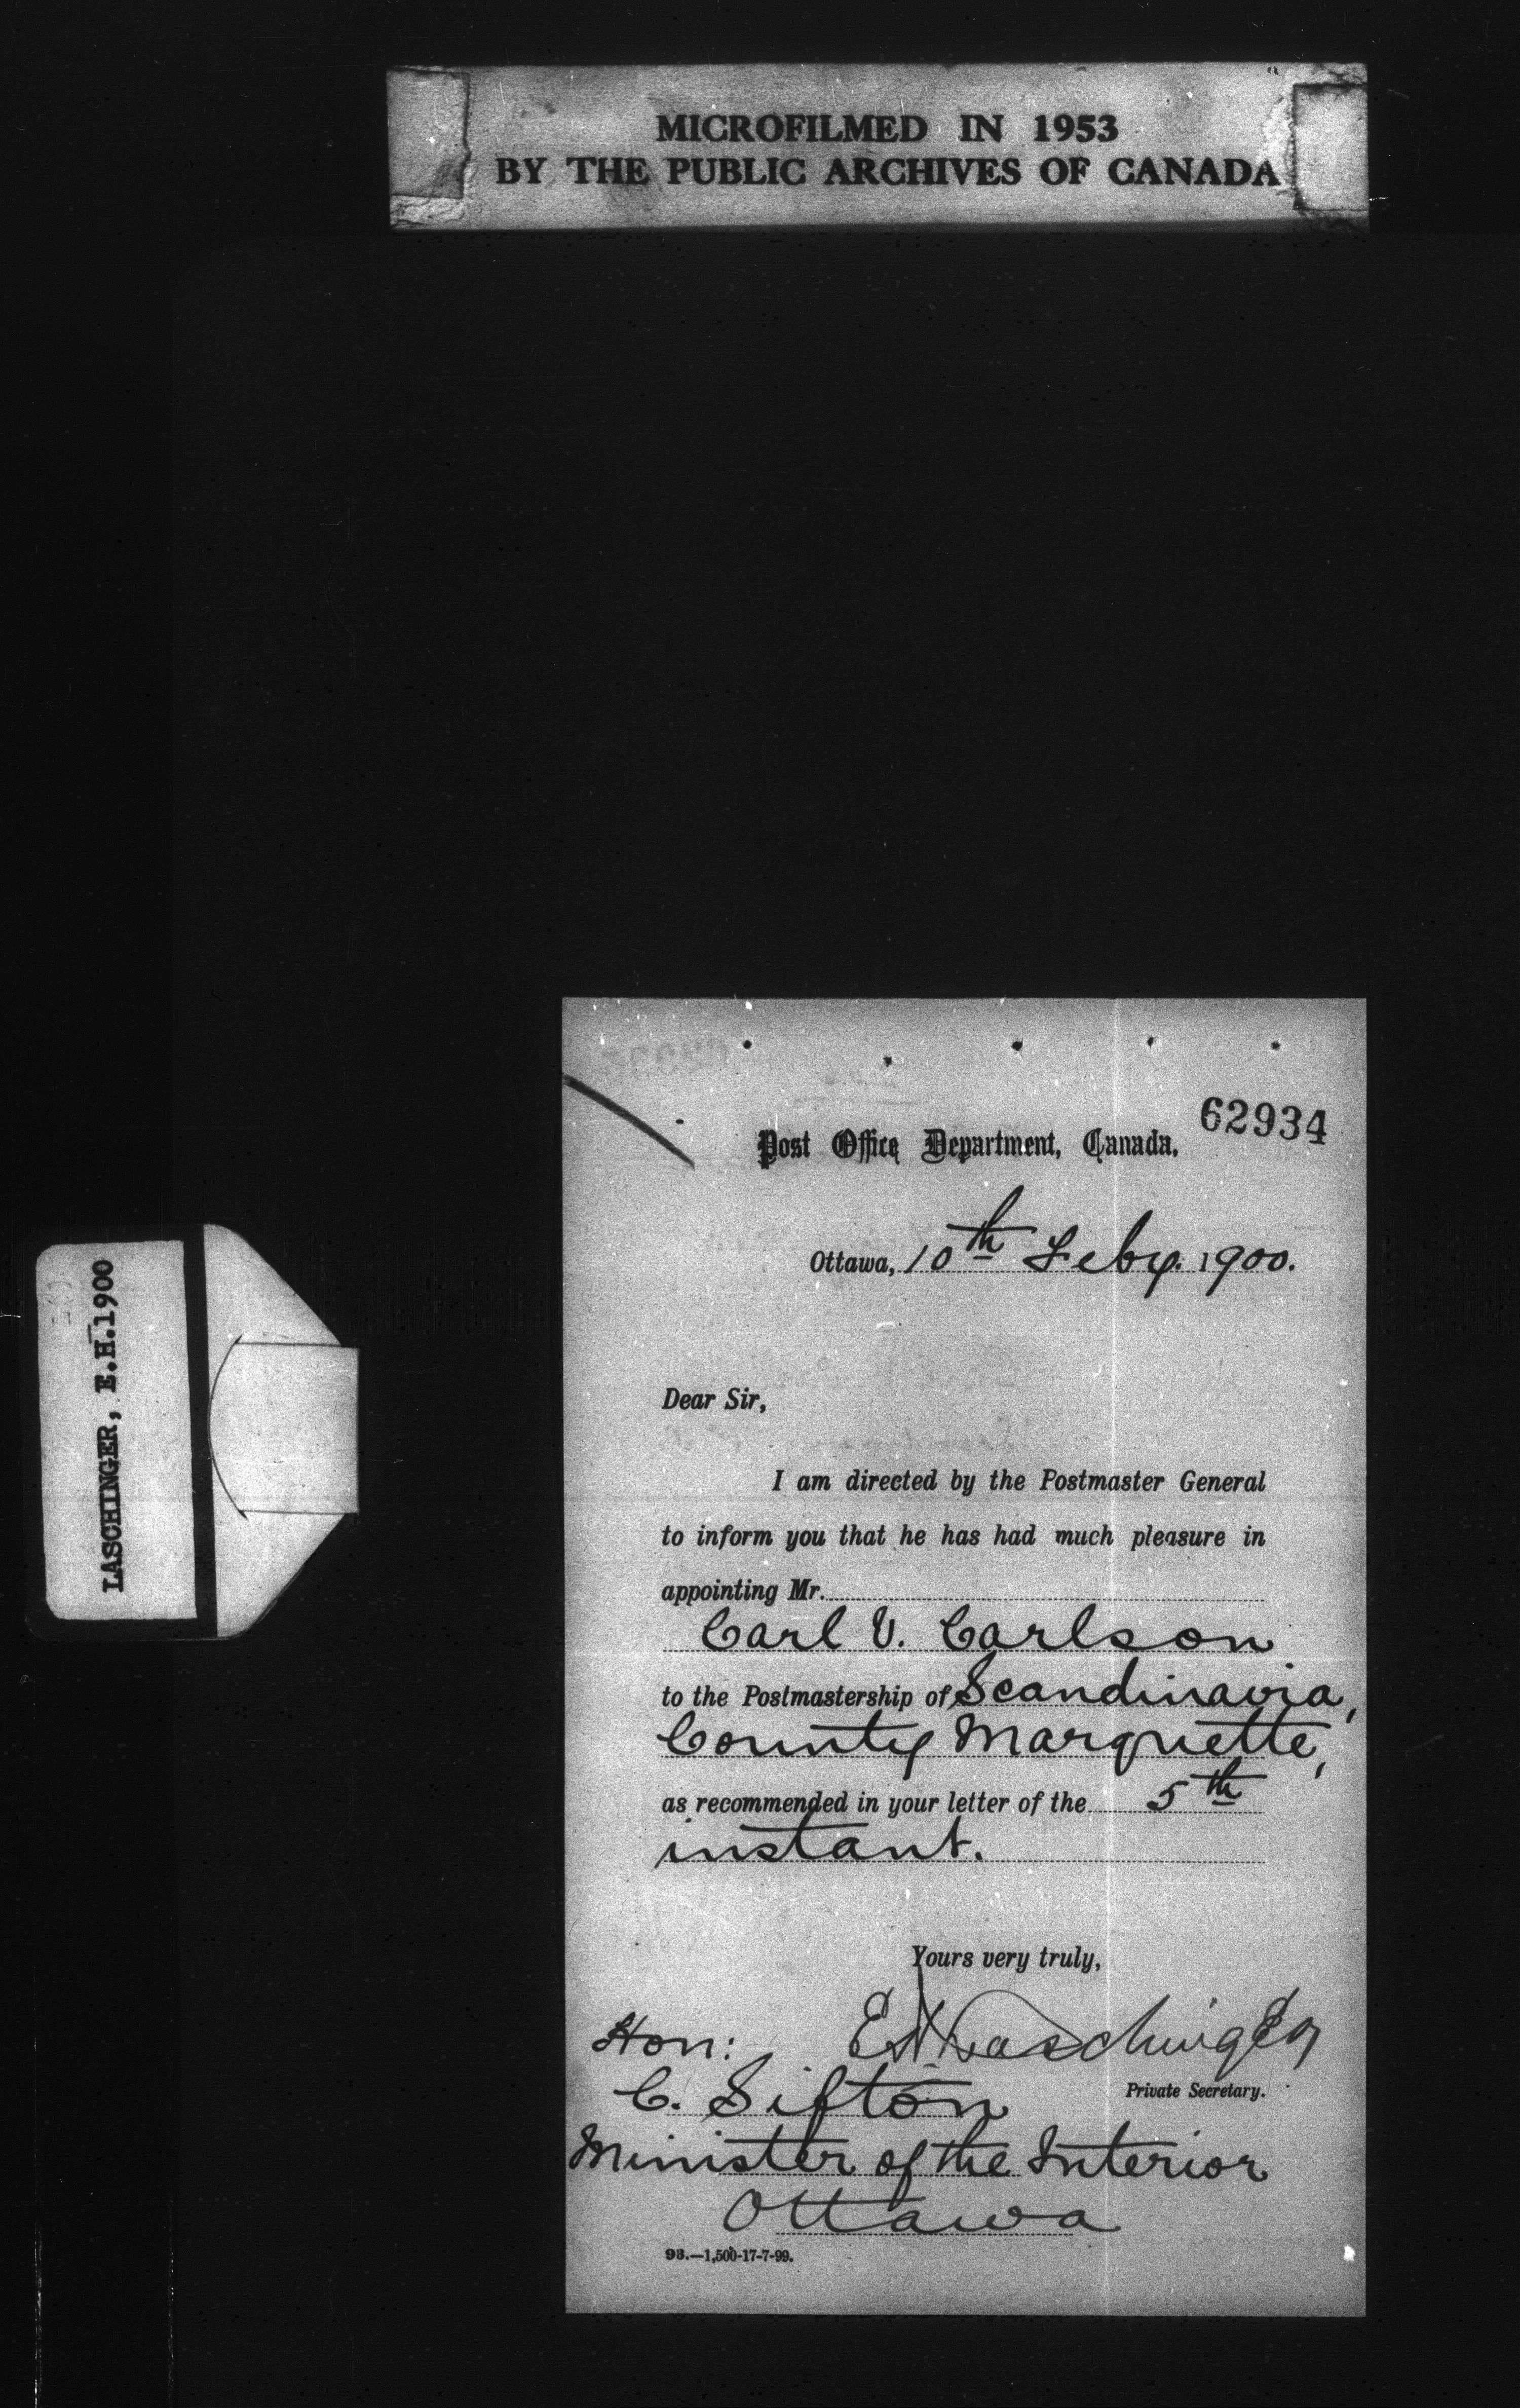 MICROFILMED IN 1953
BY THE PUBLIC ARCHIVES OF CANADA
LASCHINGER, E.H. 1900
62934
Post Office Department, Canada.
Ottawa, 10th Feby. 1900.
Dear Sir,
I am directed by the Postmaster General
to inform you that he has had much pleasure in
appointing Mr.
Carl V. Carlson
to the Postmastership of Scandinavia,
County Marquette,
as recommended in your letter of the 5th
instant.
Yours very truly,
EHLaschinger
Private Secretary.
Hon:
C. Sifton
Minister of the Interior
Ottawa
93.—1,500-17-7-99.